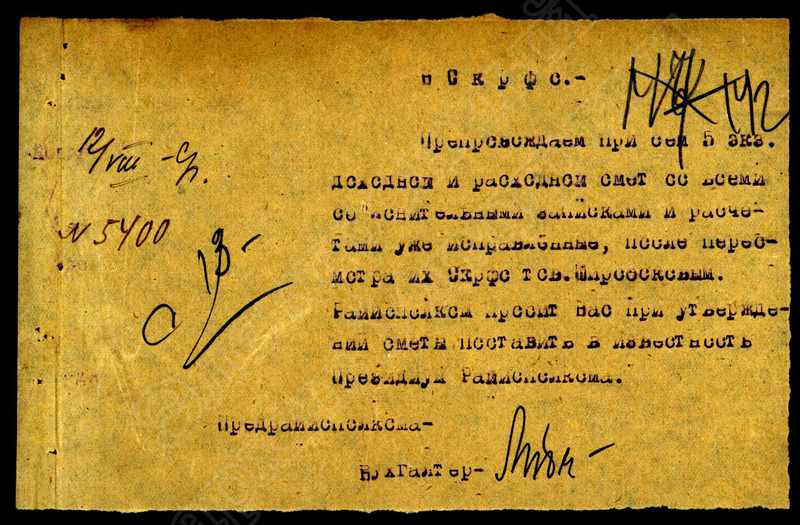 в Скрфс.-
Препровождаем при сем 5 экз.
доходной и расходной смет со всеми
об'яснительными записками и расче-
тами уже исправленные, после перес-
мотра их Скрфс тов.
Райисполком просит Вас при утвержде-
нии сметы поставить в известность
Президиум Райисполкома.
12/VIII
N 5400
13-
Предрайисполкома-
Бухгалтер-